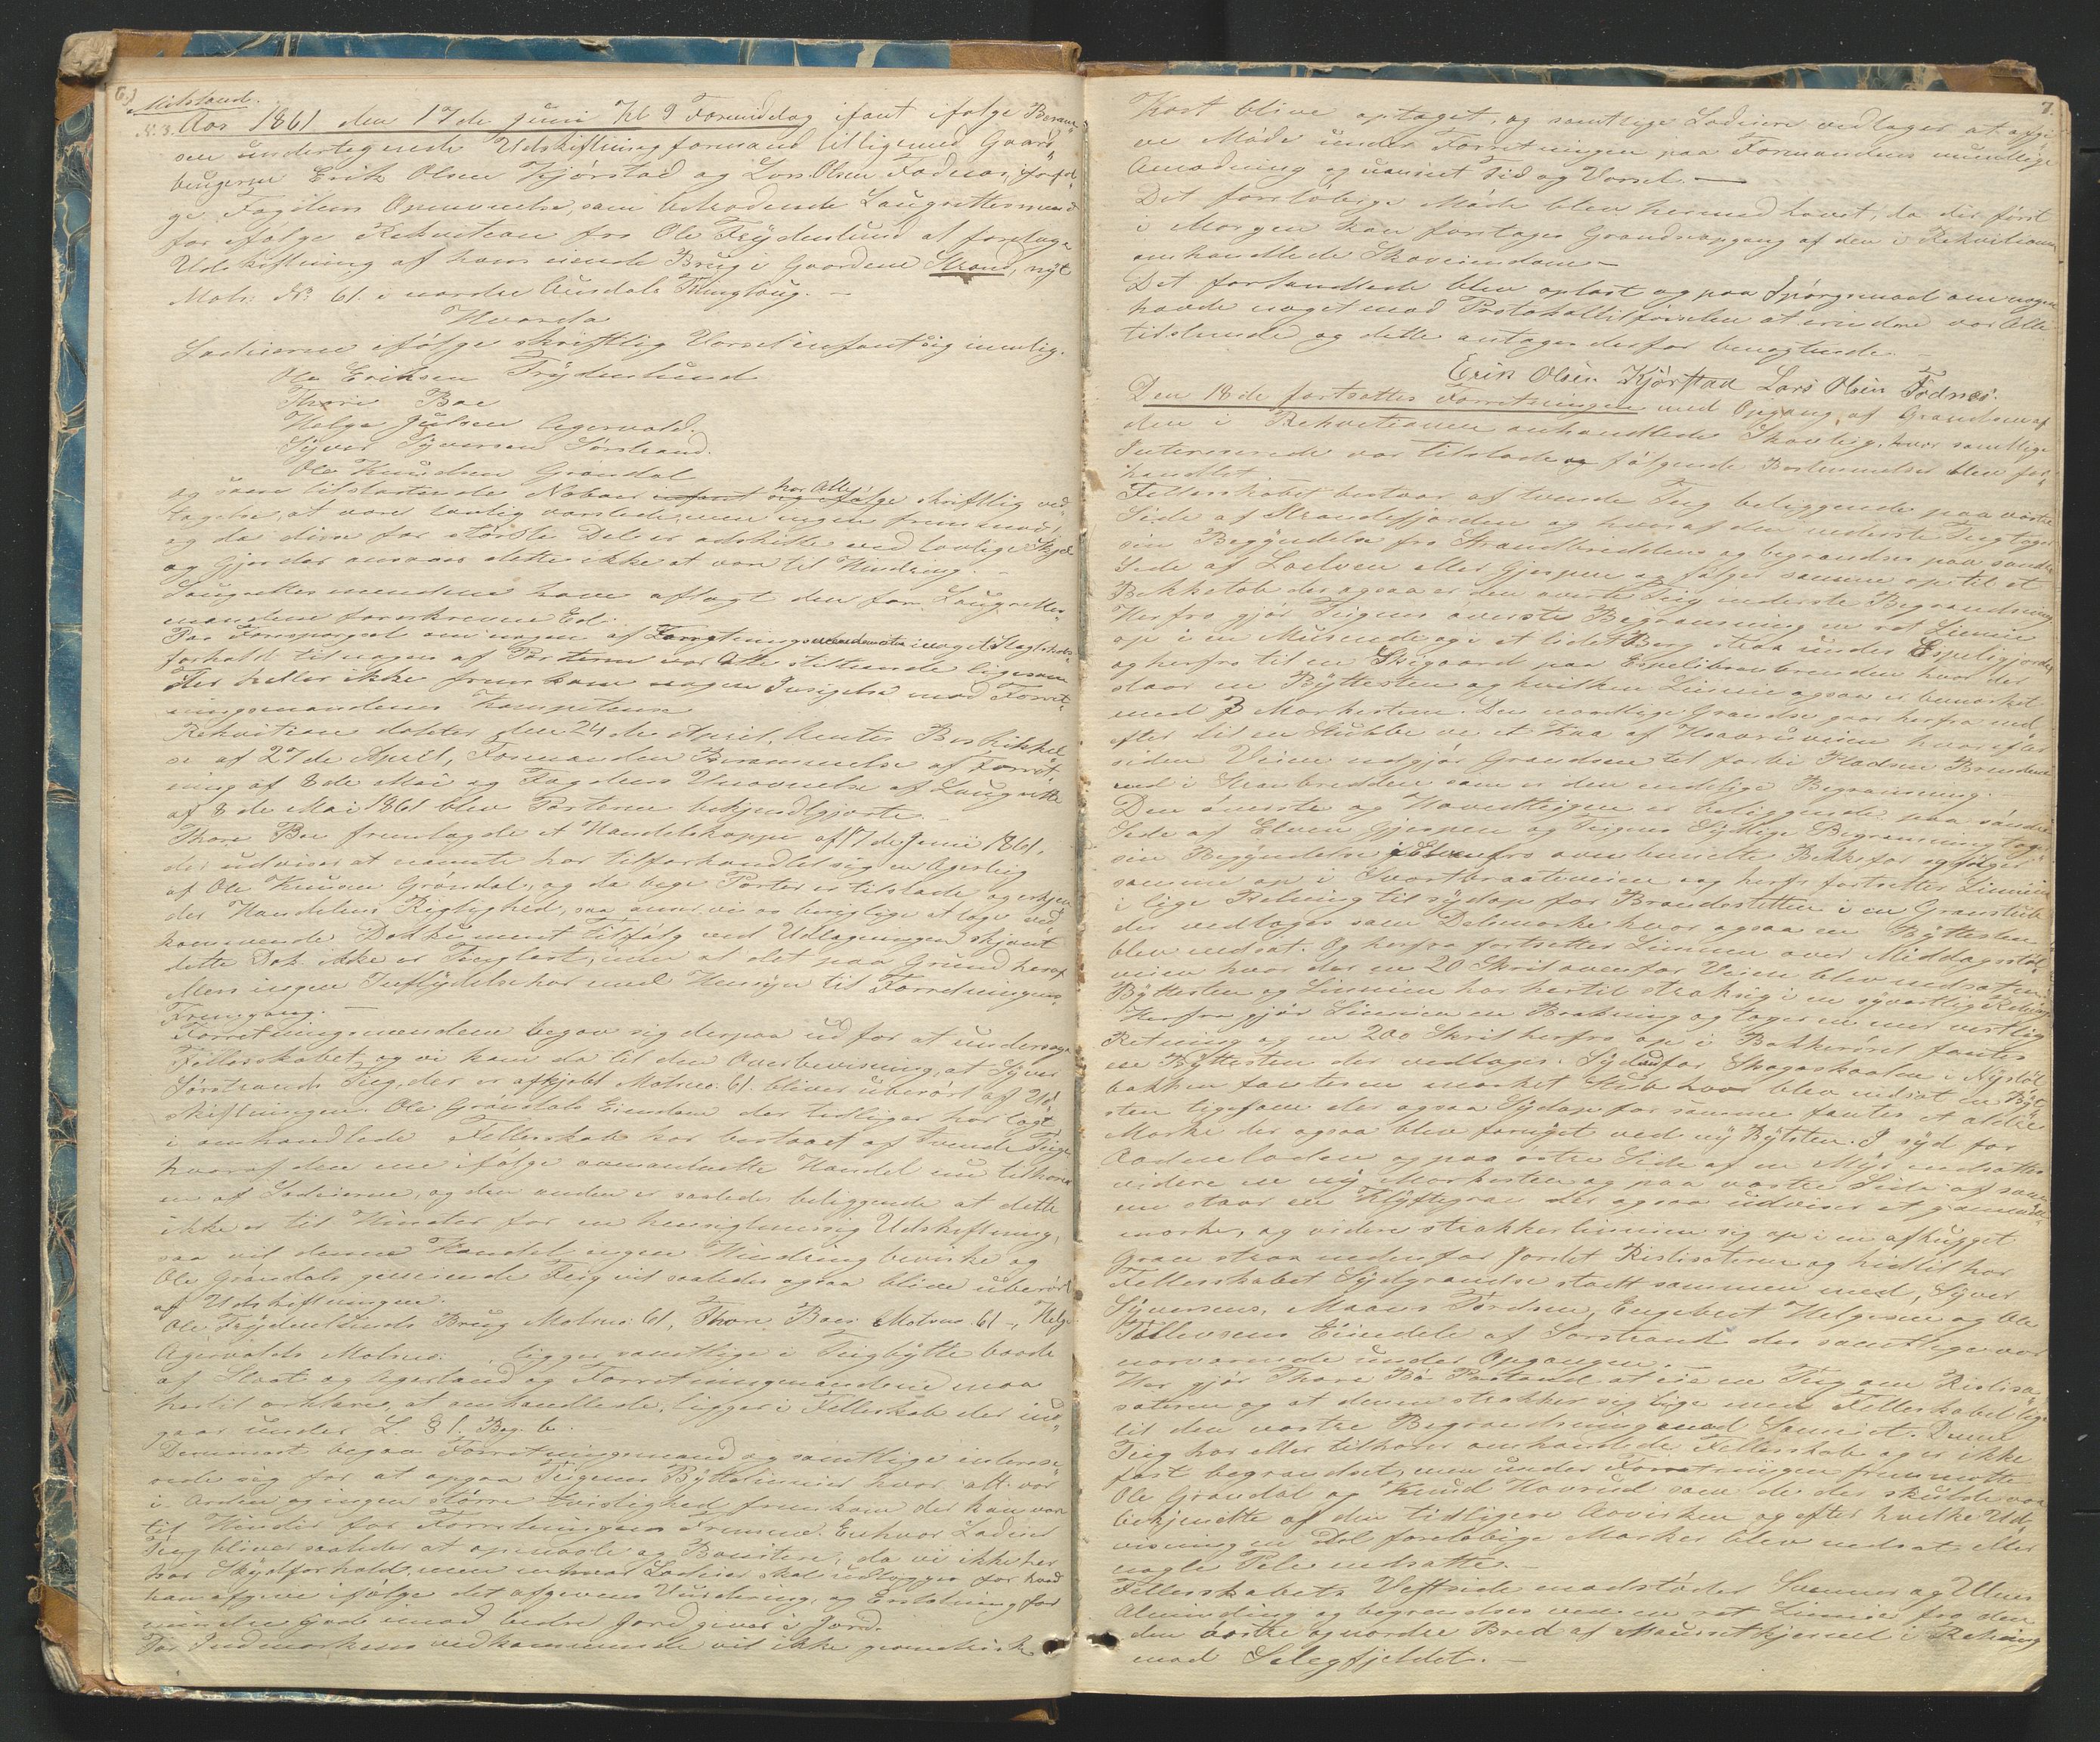 6.)
Midstrand.
N. 3. Aar 1861 den 17de Juni Kl 9 Formiddag ifant ifølge Beram-
sen undertegnede Udskiftningsformand tilligemed Gaard-
brugerne Erik Olsen Kjørstad og Lars Olsen Fødnæs, ifølg-
ge Fogdens Opnævnelse, som tiltrædende Laugrettesmænd
for ifølge Rekvisition fra Ole Frydenlund at foretage
Udskiftning af hans eiende Brug i Gaarden Strand, nyt
Matr. No. 61. i nordre Aurdals Thinglaug. —
Hvorda
Lodeierne ifølge skriftlig Varsel infant sig nemlig.
Ole Eriksen Frydenlund
Thore Bøe
Helge Julsen Agervold.
Syver Syversen Sørstrand.
Ole Knudsen Grøndal
og saa tilstødende Naboer har Alle ifølge skriftlig ved-
tagelse, at være lovlig varslede, men ingen fremmødt,
og da disse for største Del er adskilte ved lovlige Skjel
og Gjerder ansaaes dette ikke at være til Hindring. —
Laugrettesmændene have aflagt den for Laugrettes-
mændene foreskrevne Ed.
Paa Forespørgsel om nogen af Forretningsmændene staa i noget Slagtskabs-
forhold til nogen af Parterne var Alle stiltiende ligesom
der heller ikke fremkom nogen Indsigelse mod Forret-
ningsmændenes Kompetense
Rekvisition dateret den 24de April, Amtets Beskikkel-
se af 27de April, Formanden Berammelse af Forret-
ning af 8de Mai og Fogdens Udnævnelse af Laugrette
af 8de Mai 1861 blev Parterne bekjendtgjorte. —
Thore Bøe fremlagde et Handelskappe af 17de Juni 1861,
der udviser at nævnte har tilforhandlet sig en Agerteig
af Ole Knusen Grøndal, og da bege Parter er tilstede og erkjen-
der Handelens Rigtighed, saa anser vi os berigtiget at tage ved-
kommende Dokument tilfølg ved Udlægningen skjønt
dette Dok. ikke er Tinglest, men at det paa Grund heraf
Men ingen Indflydelse har med Hensyn til Forretningens
Fremgang. —
Forretningsmændene begav sig derpaa ud for at undersøge
Fællesskabet, og vi kom da til den Overbevisning, at Syver
Sørstrands Teig, der er afkjøbt Matrno. 61. bliver uberørt af Ud-
skiftningen. Ole Grøndals Eiendom der tidligere har lagt
i omhandlede Fellesskab har bestaaet af Tvende Teige
hvoraf den ene ifølge ovenanførte Handel nu tilhører
en af Lodeierne, og den anden er saaledes beliggende at dette
ikke er til Hinder for en hensigtsmæssig Udskiftning,
saa vil denne Handel ingen Hindring bevirke og
Ole Grøndals gjenværende Teig vil saaledes ogsaa blive uberørt
af Udskiftningen.
Ole Frydenlunds Brug Matrno. 61, Thore Bøes Matrno. 61 -, Helge
Agervolds Matrno. ligger samtlige i Teigbytte baade
af Slaat og Agerland og Forretningsmændene maa
hertil erklære, at omhandlede, ligger i Fellesskab der ind-
gaar under L. § 1. Bog. b.
Dernæst begav Forretningsmænd og samtlige interese-
rede sig for at opgaa Teigenes Byttelinier hvor alt var
i Orden og ingen større Tvistighed fremkom der kan være
til Hinder for Forretningens Fremme. Enhver Lodeier
Teig bliver saaledes at opmaale og Bonitere, da vi ikke her
har Skydforhold, men enhver Lodeier skal udlægges for hvad
han afgive ifølge det afgivne Vurdering, og Erstatning for
mindre god imod bedre Jord gives i Jord.
For Indmarkens vedkommende vil ikke geometrisk
7.
Kart blive optaget, og samtlige Lodeiere vedtager at afgi-
ve Møde under Forretningen paa Formandens mundtlige
Anmodning og uanseet Tid og Varsel. —
Det foreløbige Møde blev hermed hævet, da der først
i Morgen kan foretages Grandseopgang af den i Rekvisitionen
omhandlede Skoveiendom —
Det forhandlede blev oplæst og paa Spørgsmaal om nogen
havde noget mod Protokoltilførselen at erindre var Alle
tidstiende og dette antages derfor benægtende. —
Erik Olsen Kjørstad Lars Olsen Fødnæs.
Den 18de fortsattes Forretningen med Opgang af Grændsen af
den i Rekvisitionen omhandlede Skovteig, hvor samtlige
Interesserede var tilstede og følgende Bestemmelser blev for-
handlet
Fellesskabet bestaar af tvende Teig beliggende paa vestre
Side af Strandefjorden og hvoraf den nederste Teig tager
sin Begyndelse fra Strandbredden og begrændses paa søndre
Side af Loelven eller Gjespen og følger samme op til et
Bekkeløb der ogsaa er den øverste Teig nederste Begrændsning
Herfra gjør Teigens øverste Begrænsning en ret Linnie
op i en Mursende oge et lidet Berg strax under Espeligjordet
og herfra til en Skigaard paa Espelibraabrenden hvor der
staar en Byttesten og hvilken Linnie ogsaa er bemærket
med 3 Markestene. Den nordlige Grandse gaar herfra ned-
efter til en Stubbe ve et Kraa af Haarrudveien hvorefter
siden Veien udgjør Grandsen til forbi Pladsen Brenden
ned i Stranbredden som er den endelige Begrænsning.
Den øverste og Hovedteigen er beliggende paa søndre
Side af Elven Gjespen og Teignes Sydlige Begrænsning tager
sin Begyndelse i Elven fra ovenbenævnte Bekkefar og følger
samme op i Svartbraateveien og herfr fortsetter Linnien
i lige Retning til sydop for Brandestetten i en Granstub
der vedtages som Delemærke hvor ogsaa en Byttesten
blev nedsat. Og herfra fortsetter Linnien over Middagsstøl-
veien hvor der en 20 Skrit ovenfor Veien blev nedsat en
Byttesten og Linnien har hertil strakt sig i en syvestlig Retning
Herfra gjør Linnien en Brækning og tager en mer vestlig
Retning og en 200 Skrit herfra op i Bakkerøret fantes
en Byttesten der vedtages. Sydost for Skagaskaalen i Nystøl-
bakken fantes en merket Stub hvor blev nedsat en Byt-
sten ligesom der ogsaa Sydop for samme fantes et aldre
Merke der ogsaa blev fornyet ved ny Bytsten. I syd for
Aadneladen og paa østre Side af en Myr nedsattes
videre en ny Merkesten og paa vestre Side af sam-
me staar en Klyftegran der ogsaa udviser et gammelt
merke, og videre strækker linnien sig op i en afhugget
Gran strax nedenfor Jordet Ristisæteren og hidtil har
Fellesskabet Sydgrandse stødt sammen med, Syver
Syversens, Maans Tordsen, Engebret Helgesen og Ole
Tollevsens Eiendele af Sørstrand der samtlige var
nærværende under Opgangen. —
Her gjør Thore Bø Paastand at eie en Teig om Ristisæ-
sæteren og at denne strækker sig lige med Fellesskabet lige
til den vestre Begrændsning mod Sameiet. Denne
Teig har eller tilhører omhandlede Fellesskab og er ikke
fast begrandset, men under Forretningen fremmødte
Ole Grøndal og Knud Haverud som de der skulde være
bekjendte af den tidligere Aavirken og efter hvilke Ud-
visning en Del foreløbige Merker blev nedsat eller
nogle Pele nedsattes. —
Fellesskabets Vestside modstøder Svennes og Ulnes
Alminding og begrendses ved en ret Linnie fra den
den vestre og nordre Bred af Maursettjernet i Retning
mod Selegfjeldet. —